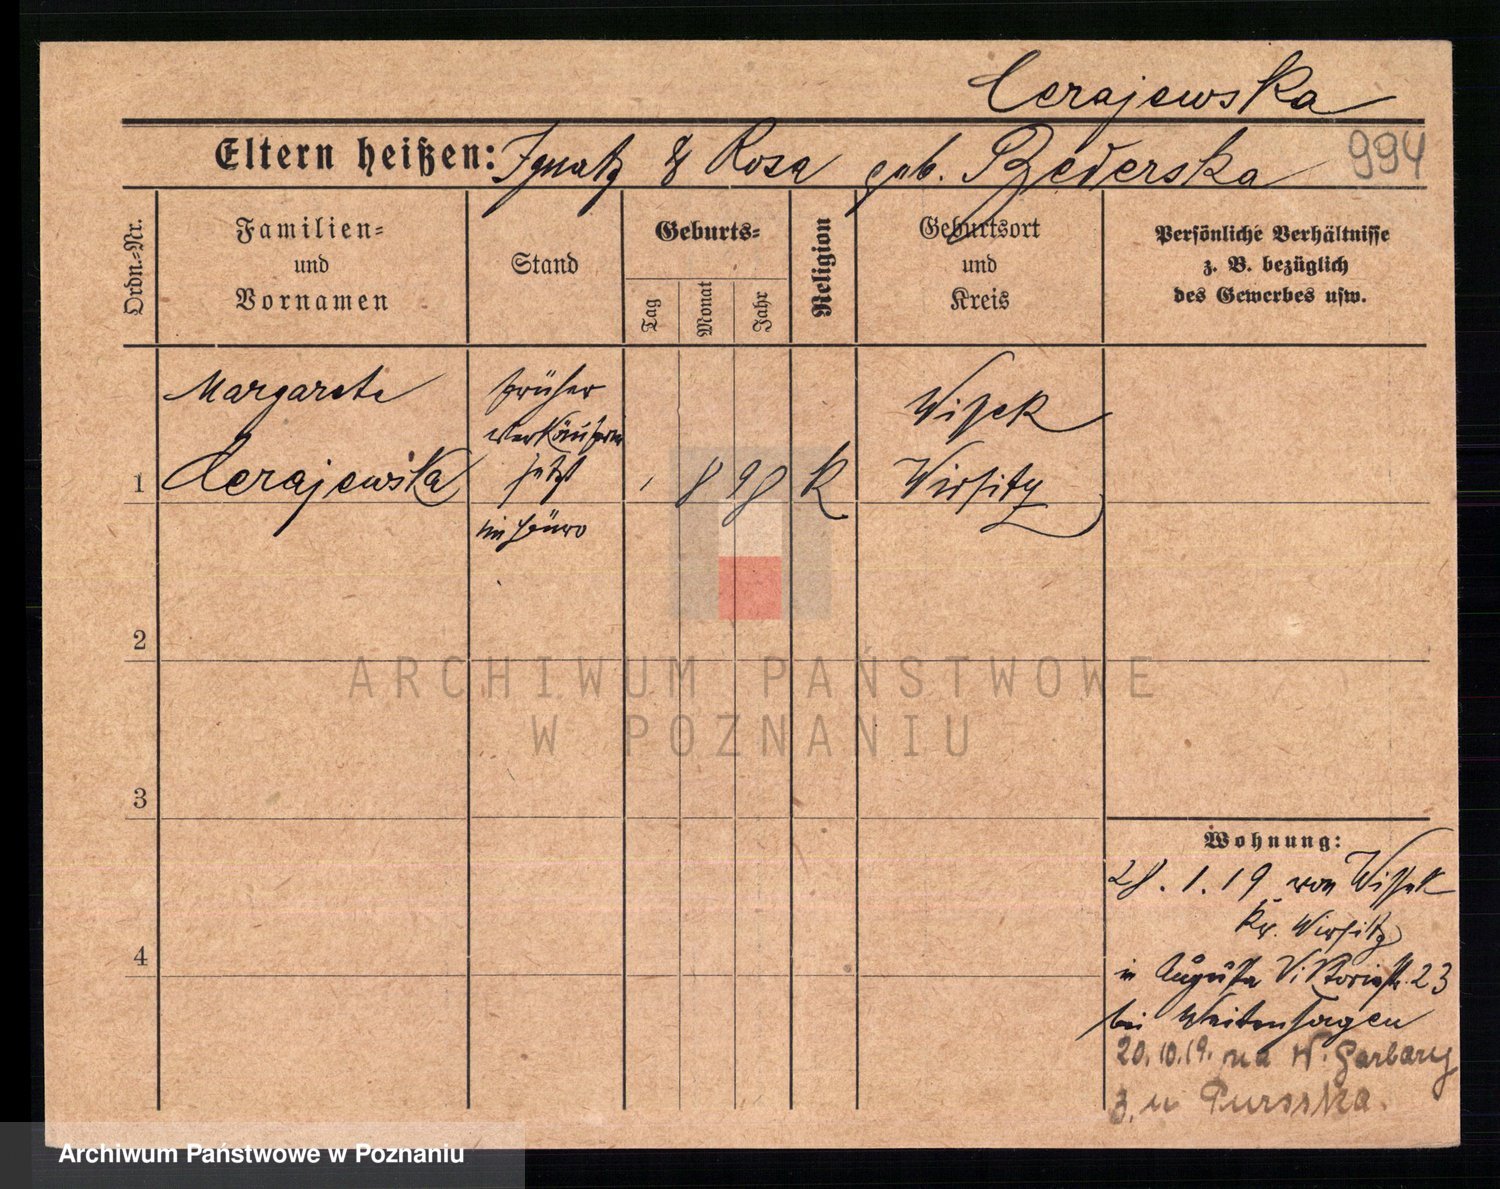 Cerajewska
Eltern heißen: Ignatz & Rosa geb. Rzederska 994
Ordn.-Nr.
Familien-
und
Vornamen
Stand
Geburts-
Tag
Monat
Jahr
Religion
Geburtsort
und
Kreis
Persönliche Verhältnisse
z. B. bezüglich
des Gewerbes usw.
Margarete
Cerajewska
früher
Verkäuferin
jetzt
im Büro
8 98
K
Wissek
Wirsitz
1
2
3
4
ARCHIWUM PAŃSTWOWE
W POZNANIU
Wohnung:
28.1.19 von Wissek
Kr. Wirsitz
in Augusta Viktoriastr. 23
bei Weitenhagen
20.10.19. na W. Garbary
3. u
Archiwum Państwowe w Poznaniu